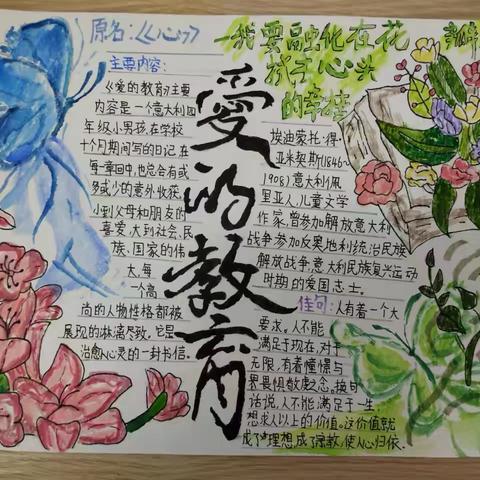 原名:《心》
我要融化在花
主要内容:
《爱的教育》主要
内容是一个意大利四
年级小男孩,在学校
十个月期间写的日记,在
每一章回中,也总会有或
多或少的意外收获。
小到父母和朋友的
喜爱,大到社会,民
族、国家的伟
大,每
一个高
尚的人物性格都被
展现的淋漓尽致。它是
治愈心灵的一封书信。
愛的教育
心头
的幸福
埃迪蒙托·得·
亚米契斯(1846~
1908)意大利佩
里亚人,儿童文学
作家,曾参加解放意大利
战争参加反奥地利统治民族
解放战争,意大利民族复兴运动
时期的爱国志士。
佳句:人有着一个大
要求。人不能
满足于现在,对于
无限,有着憧憬与
畏惧敬虔之念。换句
话说,人不能满足于一生,
想求人以上的价值。这价值就
成了理想,成了宗教,使人心归依.